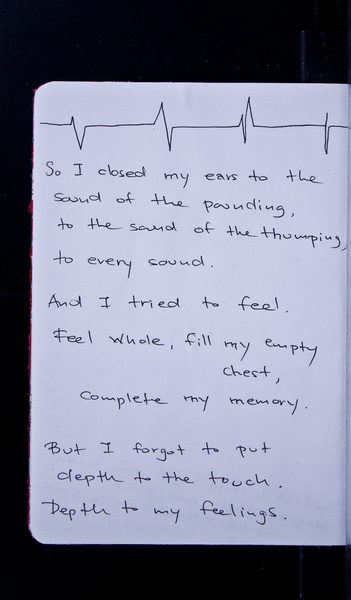 So I closed my ears to the
sound of the pounding,
to the sound of the thumping,
to every sound.
And I tried to feel.
Feel whole, fill my empty
chest,
complete my memory.
But I forgot to put
depth to the touch.
Depth to my feelings.